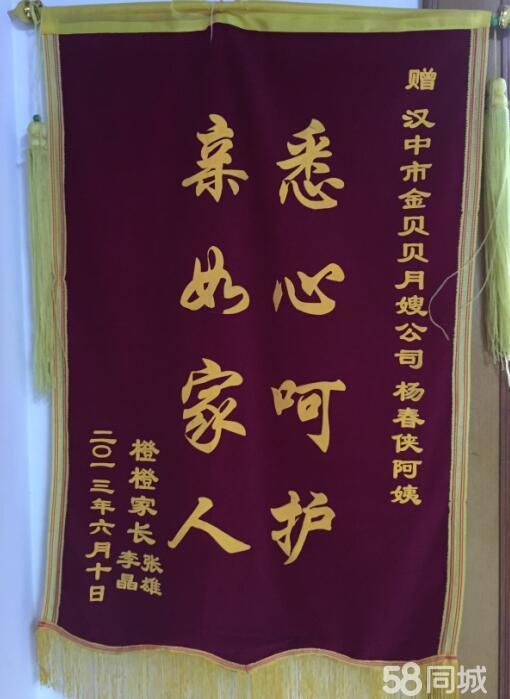 赠 汉中市金贝贝月嫂公司 杨春侠阿姨
悉心呵护
亲如家人
橙橙家长 张雄
李晶
二〇一三年六月十日
58同城